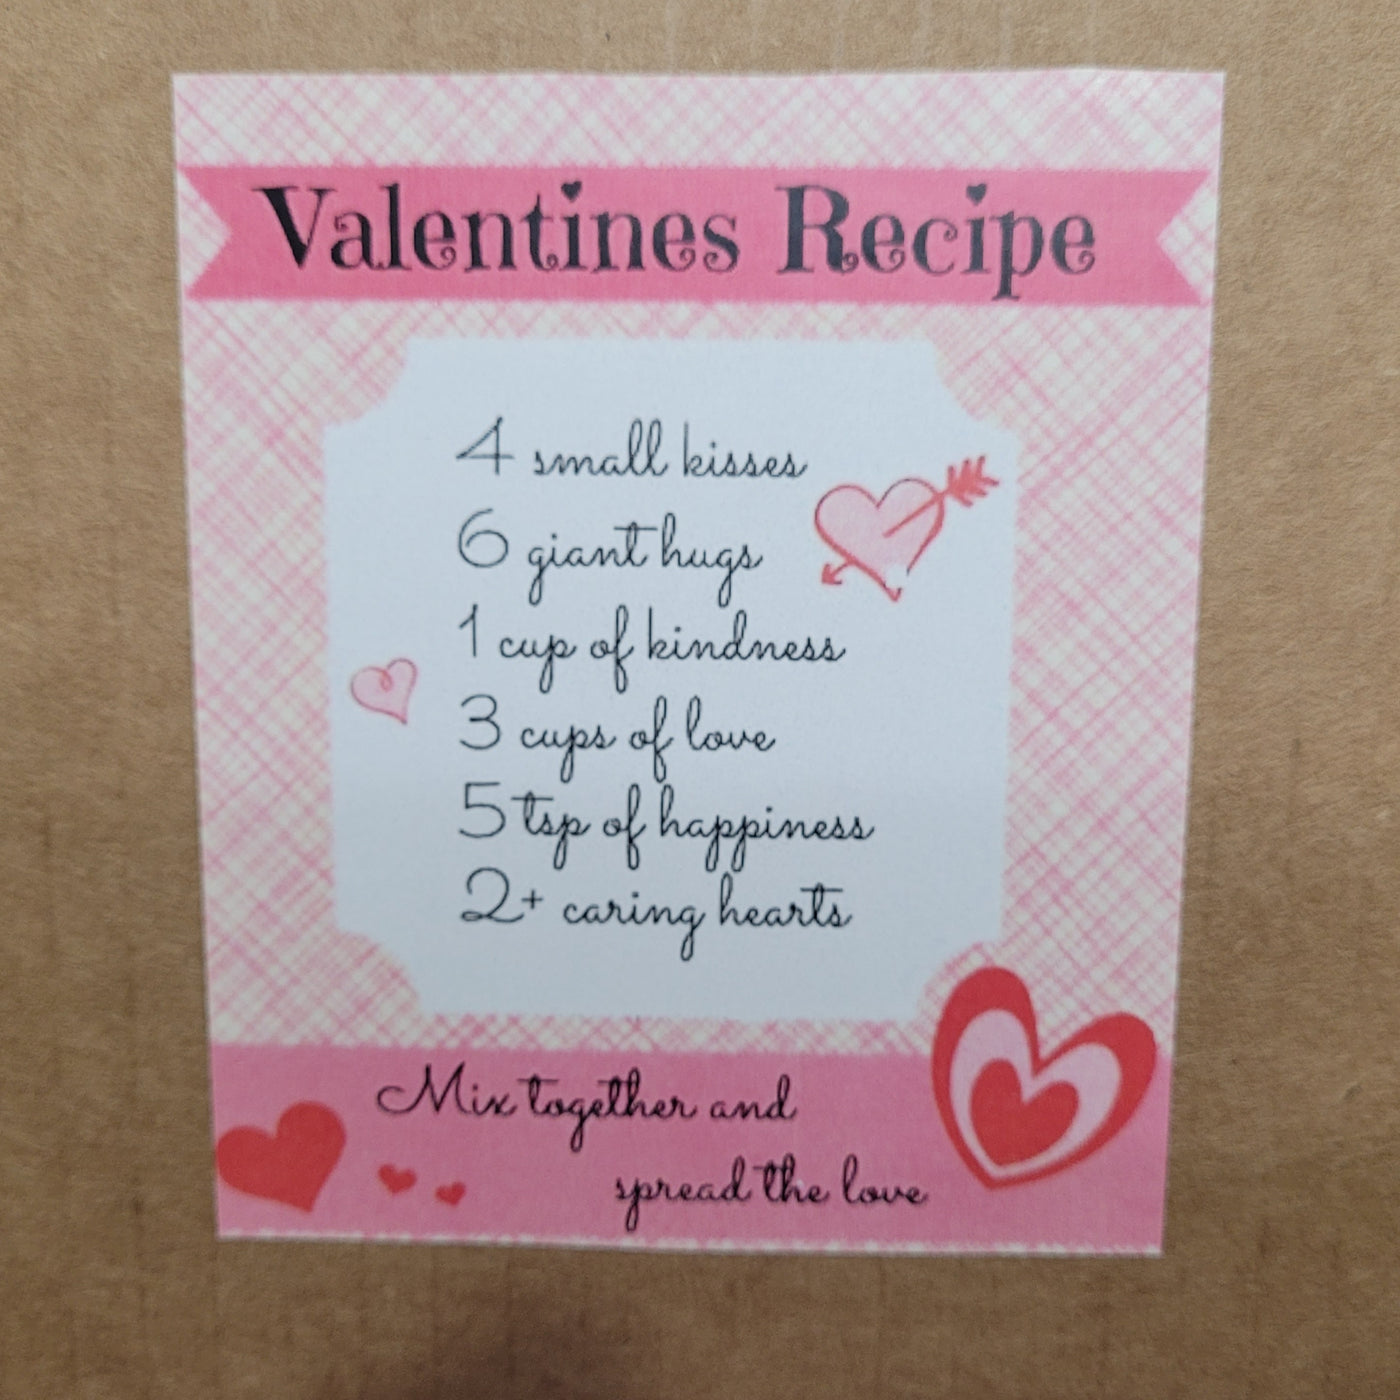 Valentines Recipe
4 small kisses
6 giant hugs
1 cup of kindness
3 cups of love
5 tsp of happiness
2+ caring hearts
Mix together and
spread the love